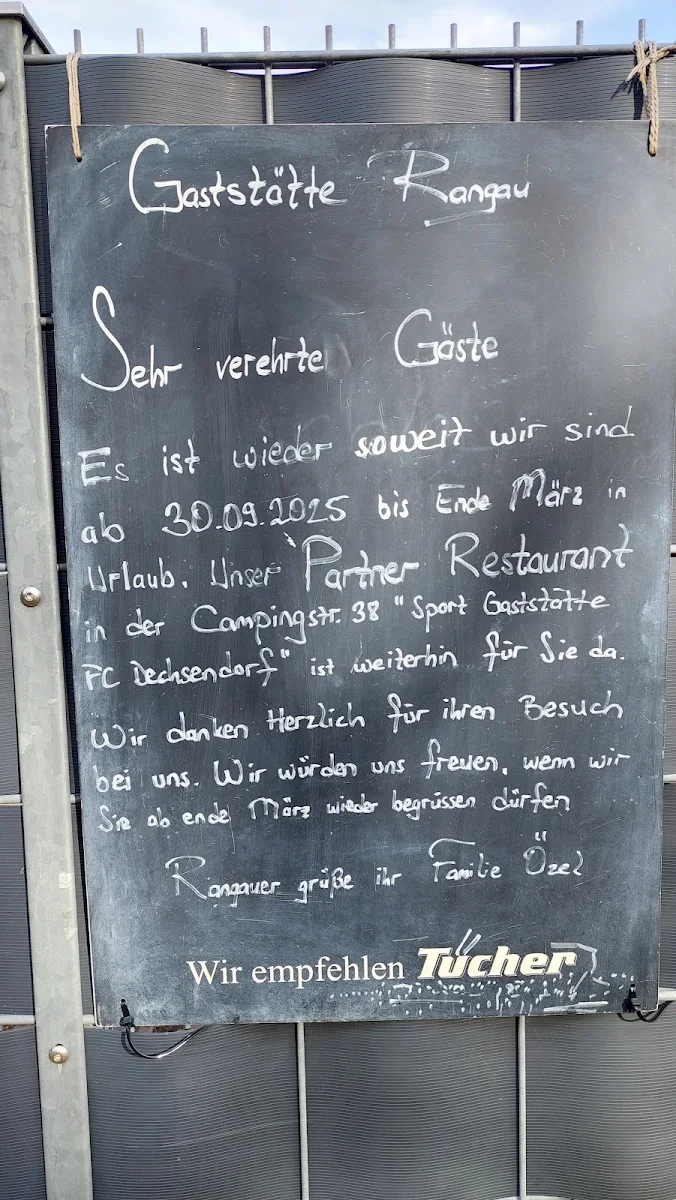 Gaststätte Rangau
Sehr verehrte Gäste
Es ist wieder soweit wir sind
ab 30.09.2025 bis Ende März in
Urlaub. Unser Partner Restaurant
in der Campingstr. 38 "Sport Gaststätte
FC Dechsendorf" ist weiterhin für Sie da.
Wir danken Herzlich für ihren Besuch
bei uns. Wir würden uns freuen, wenn wir
Sie ab ende März wieder begrüssen dürfen
Rangauer grüße ihr Familie Özel
Wir empfehlen Tucher